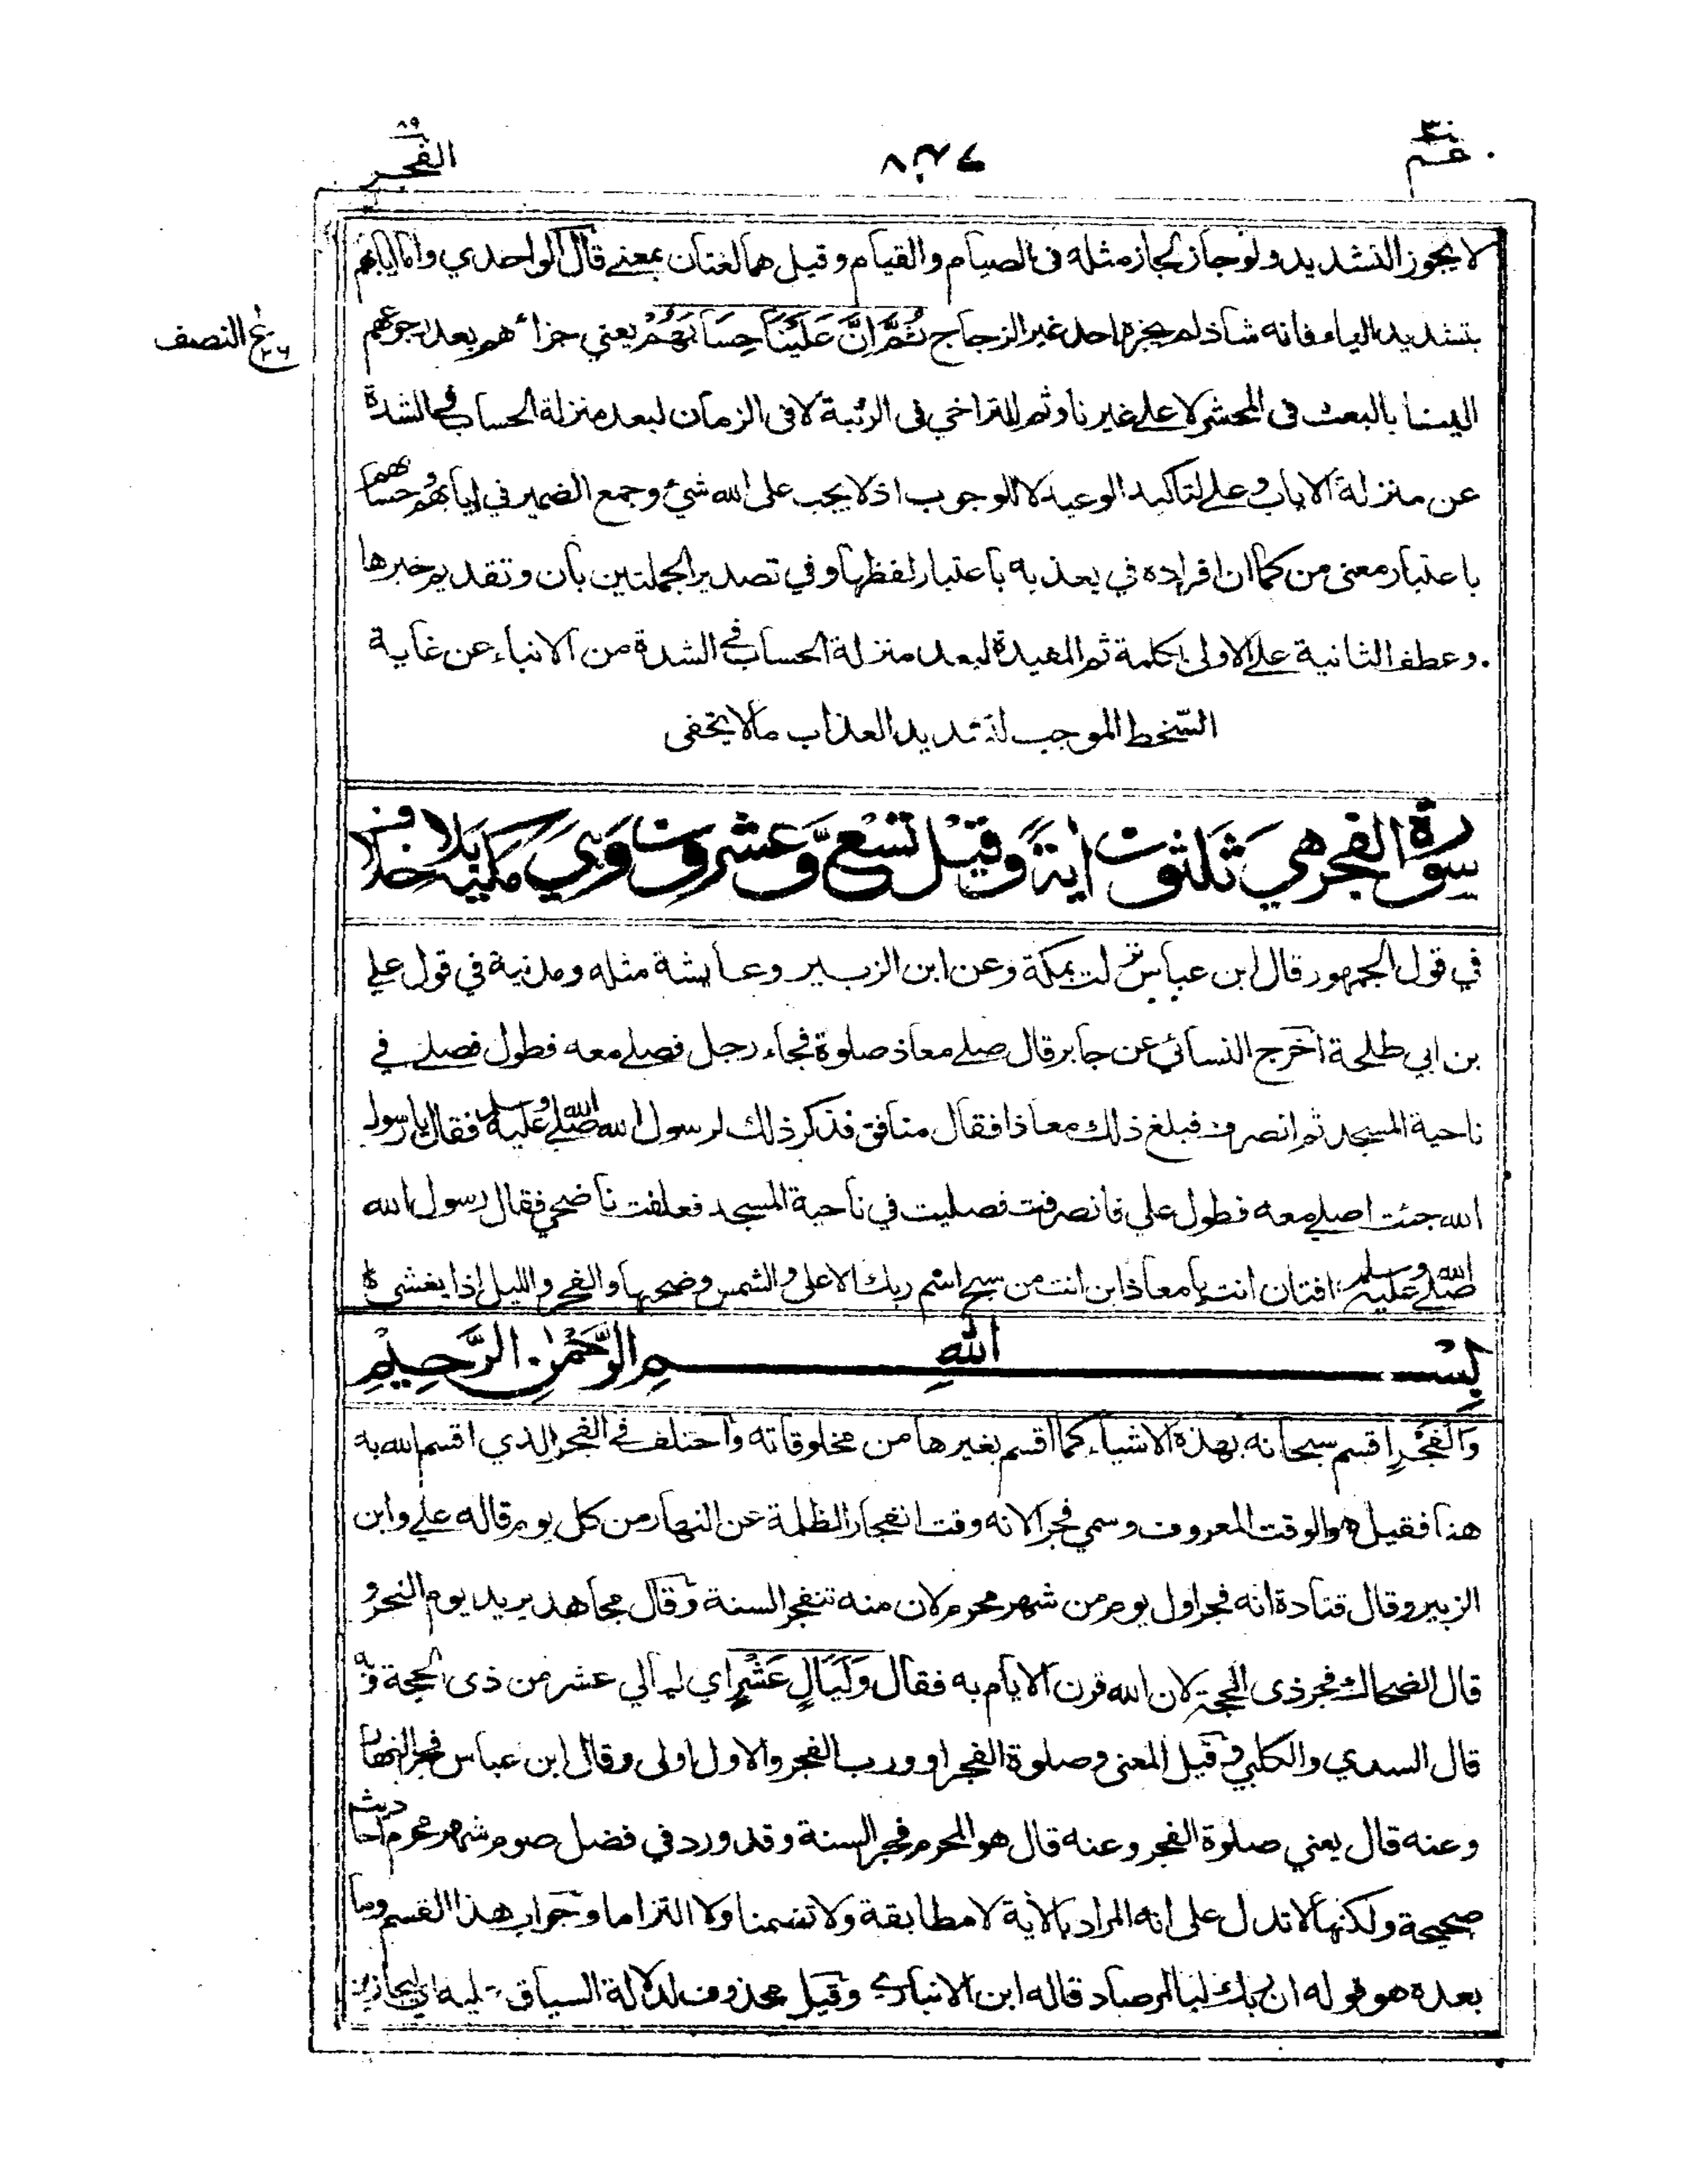 عم ٣٠
الفجر ٨٩
لا يجوز التشديد ولو جاز لجاز مثله فى الصيام والقيام وقيل هما لغتان بمعنى قال الواحدي واما ايابهم
بتشديد الياء فانه شاذ لم يجزه احد غير الزجاج ثُمَّ اِنَّ عَلَيْنَا حِسَابَهُمْ يعني جزاءهم بعد رجوعهم
ع النصف
٢٦
الينا بالبعث فى المحشر لا على غيرنا وثم للتراخي فى الرتبة لا فى الزمان لبعد منزلة الحساب في الشدة
عن منزلة الاياب وعلى لتاكيد الوعيد لا للوجوب اذ لا يجب على الله شيئ وجمع الضمير في ايابهم وحسابهم
باعتبار معنى من كما ان افراده في يعذبه باعتبار لفظها وفي تصدير الجملتين بان وتقديم خبرها
وعطف الثانية على الاولى بكلمة ثم المفيدة لبعد منزلة الحساب في الشدة من الانباء عن غاية
السّخط الموجب لتشديد العذاب مالا يخفى
سورة الفجر هي ثلثون اية وقيل تسع وَّعشرون وهي مكية بلا خلاف
في قول الجمهور قال ابن عباس نزلت بمكة وعن ابن الزبير وعايشة مثله ومدنية في قول علي
بن ابي طلحة اخرج النسائي عن جابر قال صلے معاذ صلوة فجاء رجل فصلے معه فطول فصلے في
ناحية المسجد ثم انصرف فبلغ ذلك معاذا فقال منافق فذكر ذلك لرسول الله صلے الله عليه وسلم فقال يا رسول
الله جئت اصلے معه فطول علي فانصرفت فصليت في ناحية المسجد فعلفت ناضحي فقال رسول الله
صلے الله عليه وسلم افتان انت يا معاذ اين انت من سبح اسم ربك الاعلى والشمس وضحىها والفجر والليل اذا يغشى
بِسْمِ اللهِ الرَّحْمٰنِ الرَّحِيْمِ
وَالْفَجْرِ اقسم سبحانه بهذه الاشياء كما اقسم بغيرها من مخلوقاته واختلف في الفجر الذي اقسم الله به
هذا فقيل هو الوقت المعروف وسمي فجرا لانه وقت انفجار الظلمة عن النهار من كل يوم قاله علي وابن
الزبير وقال قتادة انه فجر اول يوم من شهر محرم لان منه تنفجر السنة وقال مجاهد يريد يوم النحر و
قال الضحاك فجر ذى الحجة لان الله قرن الايام به فقال وَلَيَالٍ عَشْرٍ اي ليالي عشر من ذى الحجة وبه
قال السدي والكلبي وقيل المعنى وصلوة الفجر او ورب الفجر والاول اولى وقال ابن عباس فجر النهار
وعنه قال يعني صلوة الفجر وعنه قال هو المحرم فجر السنة وقد ورد في فضل صوم شهر محرم احاديث
صحيحة ولكنها لا تدل على انه المراد بالاية لا مطابقة ولا تضمنا ولا التزاما وجواب هذا القسم وما
بعده هو قوله ان ربك لبالمرصاد قاله ابن الانباري وقيل محذوف لدلالة السياق عليه اي ليجازين